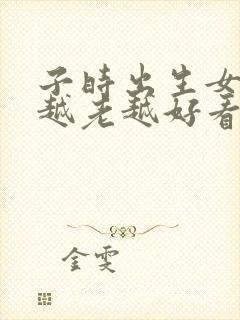 子时出生女
越老越好看
金雯